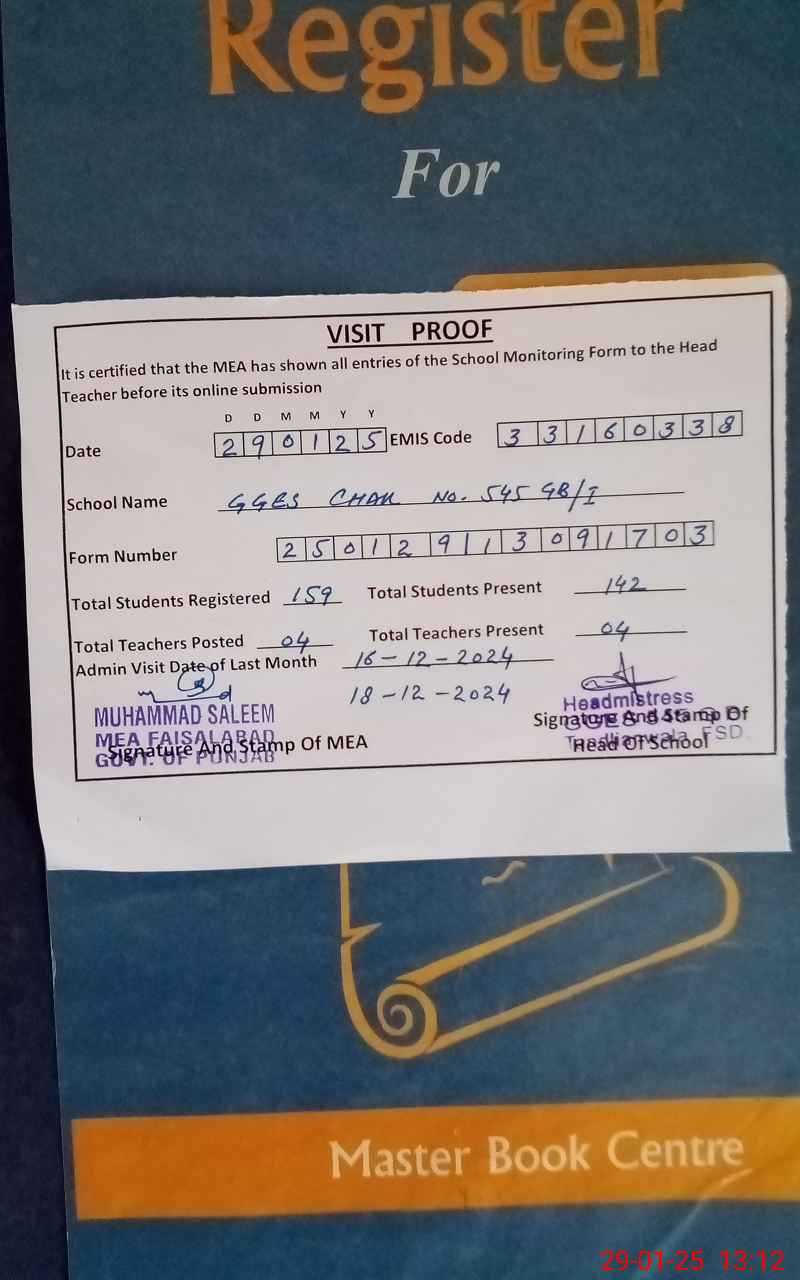 Register
For
VISIT PROOF
It is certified that the MEA has shown all entries of the School Monitoring Form to the Head
Teacher before its online submission
D D M M Y Y
Date 290125 EMIS Code 33160338
School Name GGES CHAK No. 545 GB/I
Form Number 25012911309 1703
Total Students Registered 159 Total Students Present 142
Total Teachers Posted 04 Total Teachers Present 04
Admin Visit Date of Last Month 16-12-2024
18-12-2024
MUHAMMAD SALEEM
MEA FAISALABAD
GOVT. OF PUNJAB
Signature And Stamp Of MEA
Headmistress
Signature And Stamp Of
Head Of School
FSD.
Master Book Centre
29-01-25 13:12